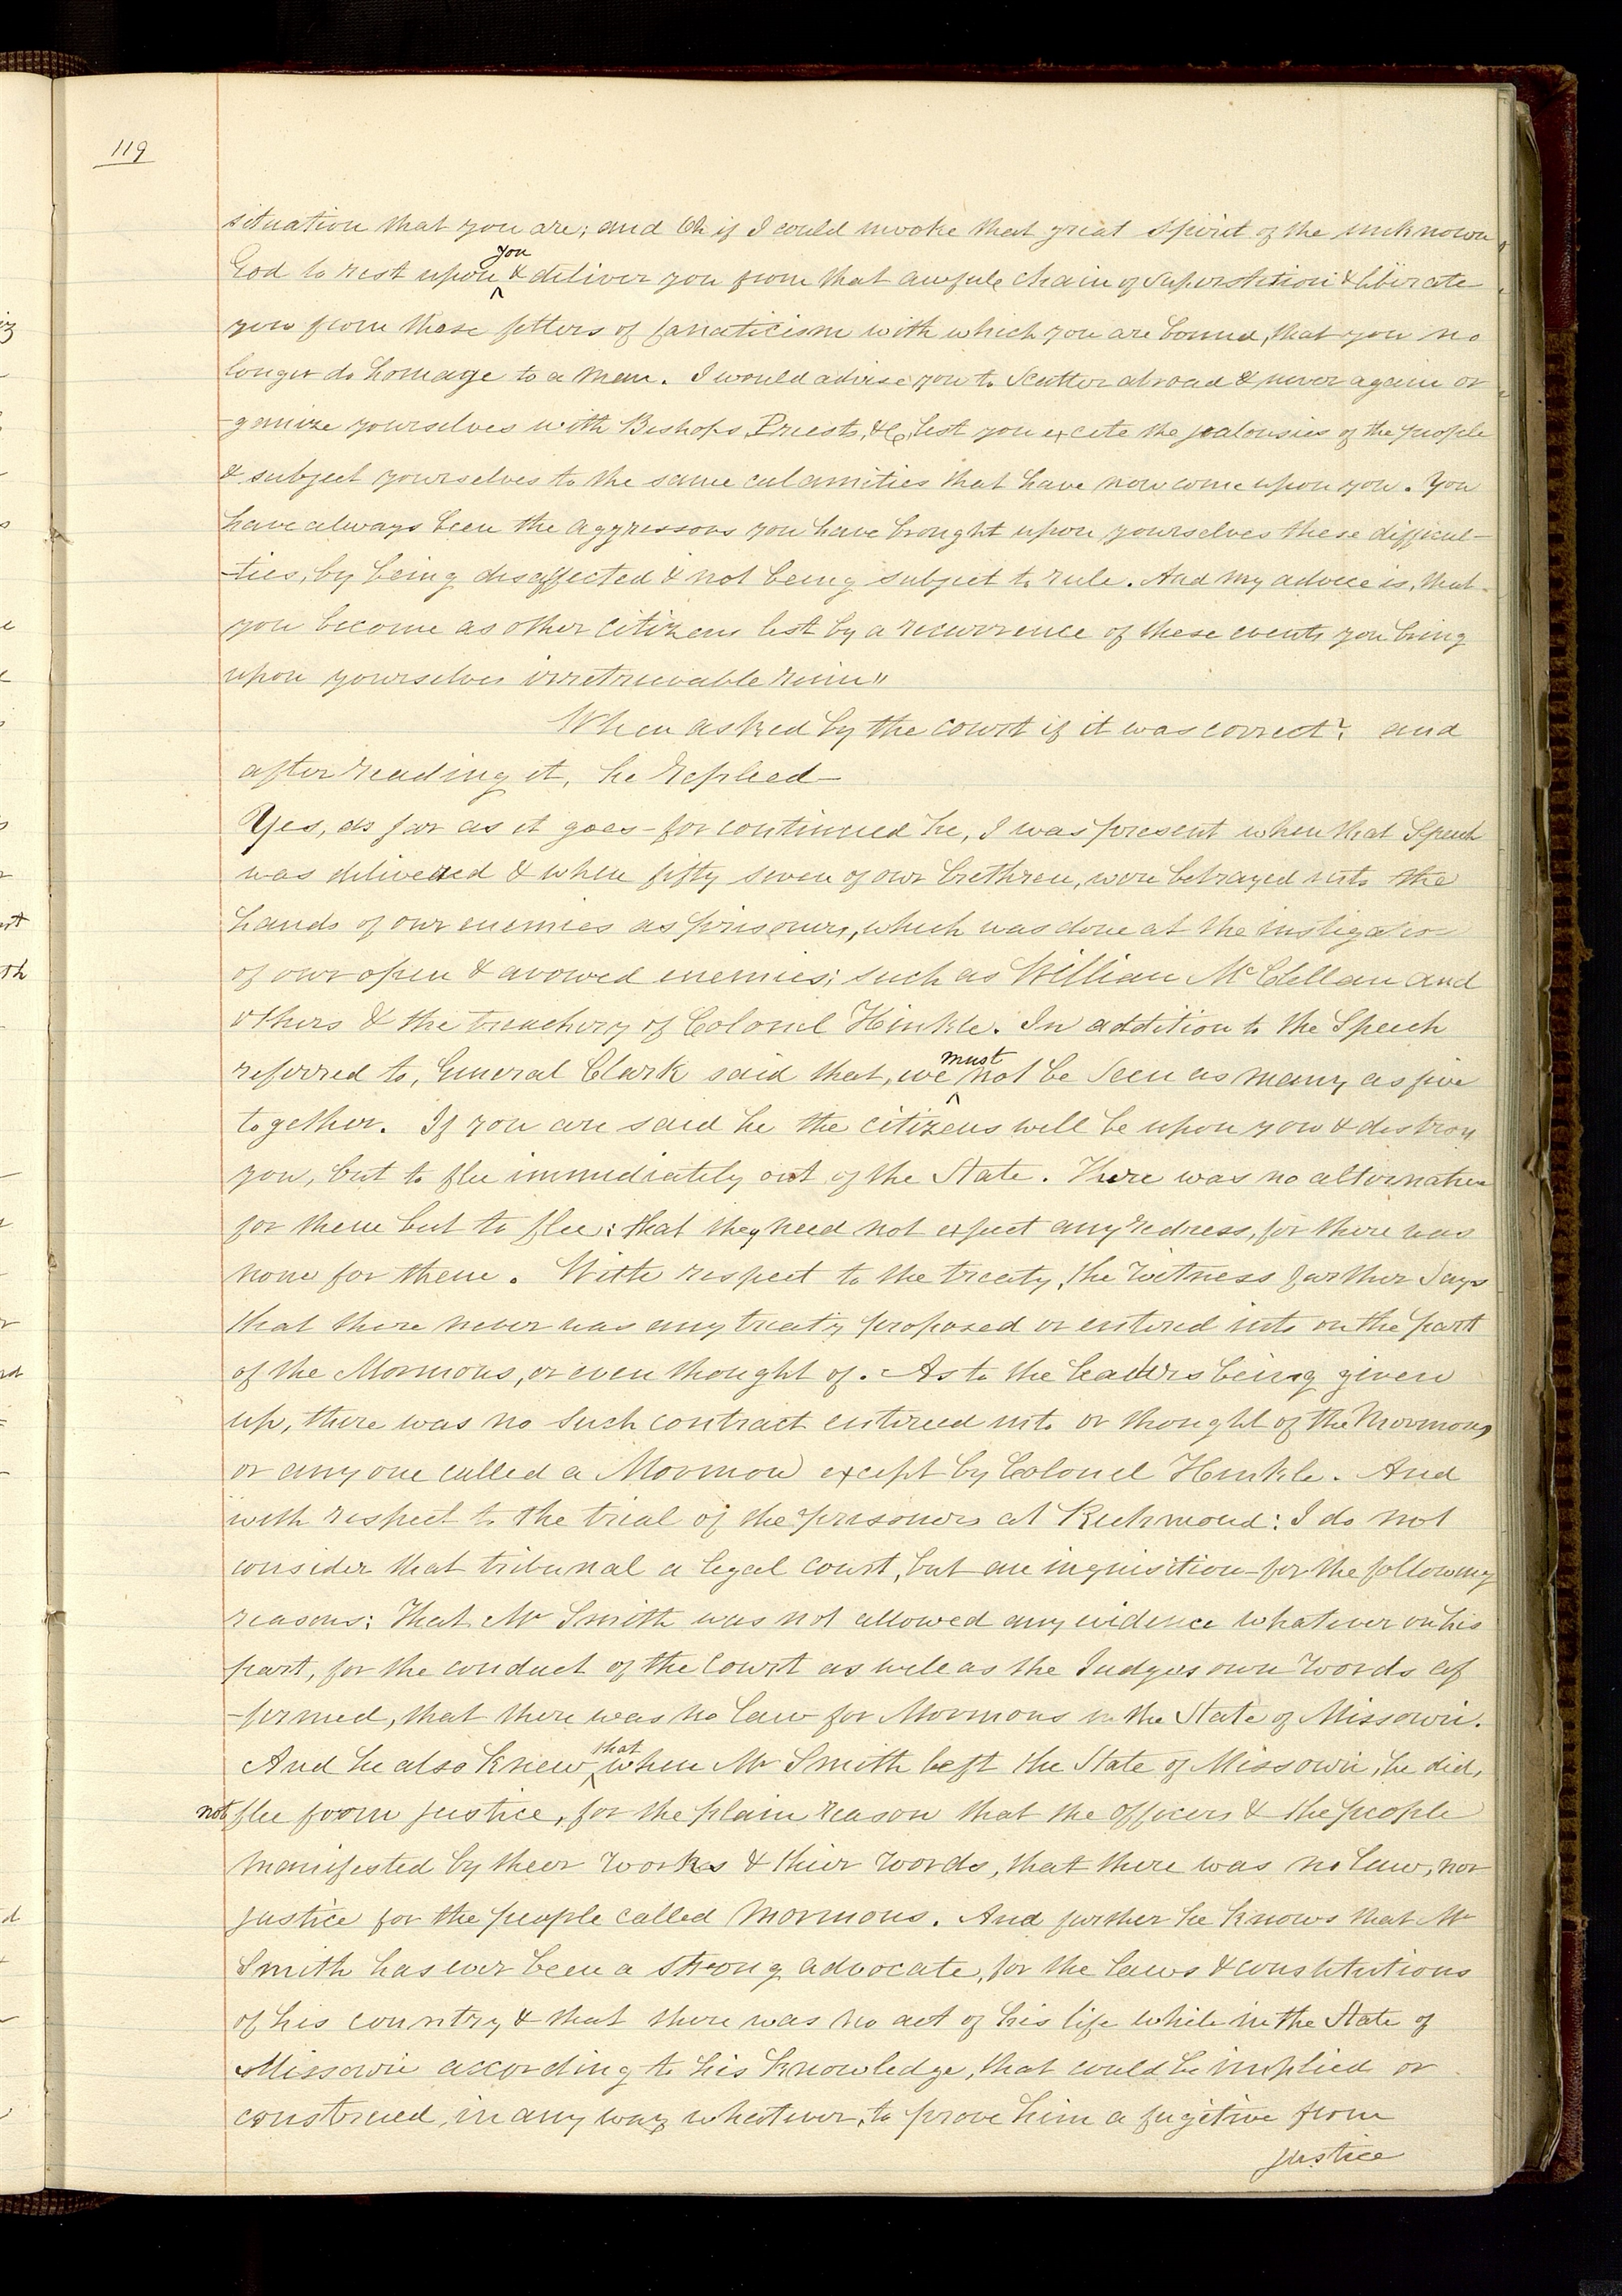 119
situation that you are; and Oh if I could invoke that great Spirit of the unknown
God to rest upon you & deliver you from that awfull chain of Superstition & liberate
you from those fetters of fanaticism with which you are bound, that you no
longer do homage to a man. I would advise you to scatter abroad & never again or
-ganize yourselves with Bishops, Priests, &c, lest you excite the jealousies of the people
& subject yourselves to the same calamities that have now come upon you. You
have always been the aggressors you have brought upon yourselves these difficul-
-ties, by being disaffected & not being subject to rule. And my advice is, that
you become as other citizens lest by a recurrence of these events you bring
upon yourselves irretrievable ruin"
When asked by the court if it was correct? and
after reading it, he replied—
Yes, as far as it goes—for continued he, I was present when that Speech
was delivered & when fifty seven of our brethren, were betrayed into the
hands of our enemies as prisoners, which was done at the instigation
of our open & avowed enemies; such as William McClellan and
others & the treachery of Colonel Hinkle. In addition to the Speech
referred to, General Clark said that, we must not be seen as many as five
together. If you are said he the citizens will be upon you & destroy
you, but to flee immediately out of the State. There was no alternative
for them but to flee: that they need not expect any redress, for there was
none for them. With respect to the treaty, the witness farther Says
that there never was any treaty proposed or entered into on the part
of the Mormons, or even thought of. As to the leaders being given
up, there was no such contract entered into or thought of the Mormons,
or any one called a Mormon except by Colonel Hinkle. And
with respect to the trial of the prisoners at Richmond: I do not
consider that tribunal a legal court, but an inquisition—for the following
reasons: That Mr Smith was not allowed any evidence whatever on his
part, for the conduct of the Court as well as the Judges own words af
-firmed, that there was no law for Mormons in the State of Missouri.
And he also knew that when Mr Smith left the State of Missouri, he did,
not flee from justice, for the plain reason that the officers & the people
manifested by their works & thier words, that there was no law, nor
justice for the people called Mormons. And further he knows that Mr
Smith has ever been a strong advocate, for the laws & constitutions
of his country & that there was no act of his life while in the State of
Missouri according to his knowledge, that could be implied or
construed, in any way whatever, to prove him a fugitive from
justice